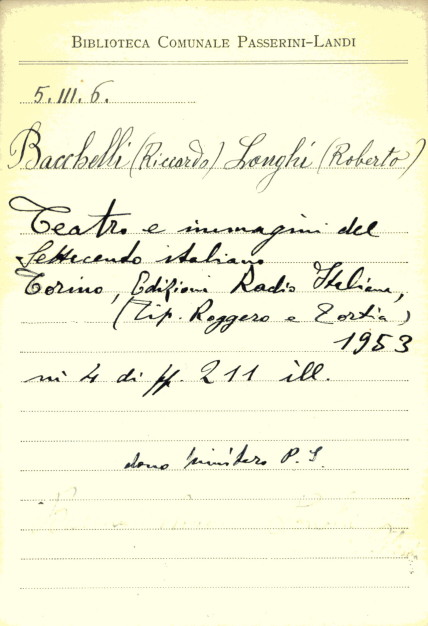 BIBLIOTECA COMUNALE PASSERINI-LANDI
5.III.6.
Bacchelli (Riccardo) Longhi (Roberto)
Teatro e immagini del
Settecento italiano
Torino, Edizioni Radio Italiana,
(Tip. Roggero e Tortia)
1953
in 4 di pp. 211 ill.
dono Ministero P. I.